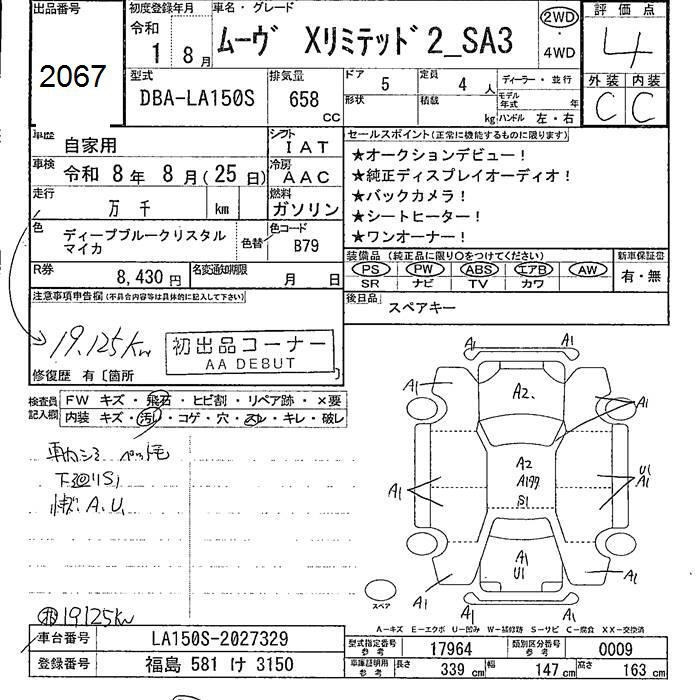 出品番号
2067
初度登録年月
令和
1 8月
車名・グレード
ムーヴ Xリミテッド2_SA3
2WD
・
4WD
評価点
4
外装 内装
C C
型式
DBA-LA150S
排気量
658
CC
ドア 5
定員 4 人
ディーラー・並行
形状
積載
kg
モデル年式 年
ハンドル 左・右
車歴 自家用
シフト IAT
車検 令和 8年 8月(25日)
冷房 AAC
走行 万 千 km
燃料 ガソリン
色 ディープブルークリスタル
マイカ
色替
色コード B79
R券 8,430円
名変通知期限 月 日
セールスポイント(正常に機能するものに限ります)
★オークションデビュー!
★純正ディスプレイオーディオ!
★バックカメラ!
★シートヒーター!
★ワンオーナー!
装備品 (純正品に限り○をつけてください)
PS PW ABS エアB AW
SR ナビ TV カワ
新車保証書
有・無
後日品 スペアキー
注意事項申告欄(不具合内容等は具体的に記入して下さい)
19.125Km
初出品コーナー
AA DEBUT
修復歴 有〔箇所 〕
検査員
記入欄
FW キズ・飛石・ヒビ割・リペア跡・×要
内装 キズ・汚レ・コゲ・穴・スレ・キレ・破レ
車内シミ ペット毛
下廻りS1
A.U,
19125Km
A1
A1
A2.
A1
A1
A1
A2
A199
S1
U1
A1
A1
U1
A1
A1
A1
A1
スペア
A-キズ E-エクボ U-凹み W-補修跡 S-サビ C-腐食 XX-交換済
車台番号 LA150S-2027329
登録番号 福島 581 け 3150
型式指定番号
参考
17964
類別区分番号
参考
0009
車庫証明用
参考
長さ 339 cm
幅 147 cm
高さ 163 cm